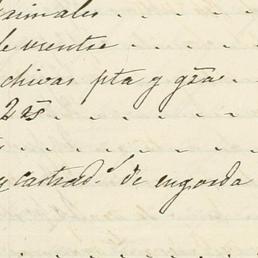 animales
de vientre
chivas pta y gra
2 rs
y castrads de engorda